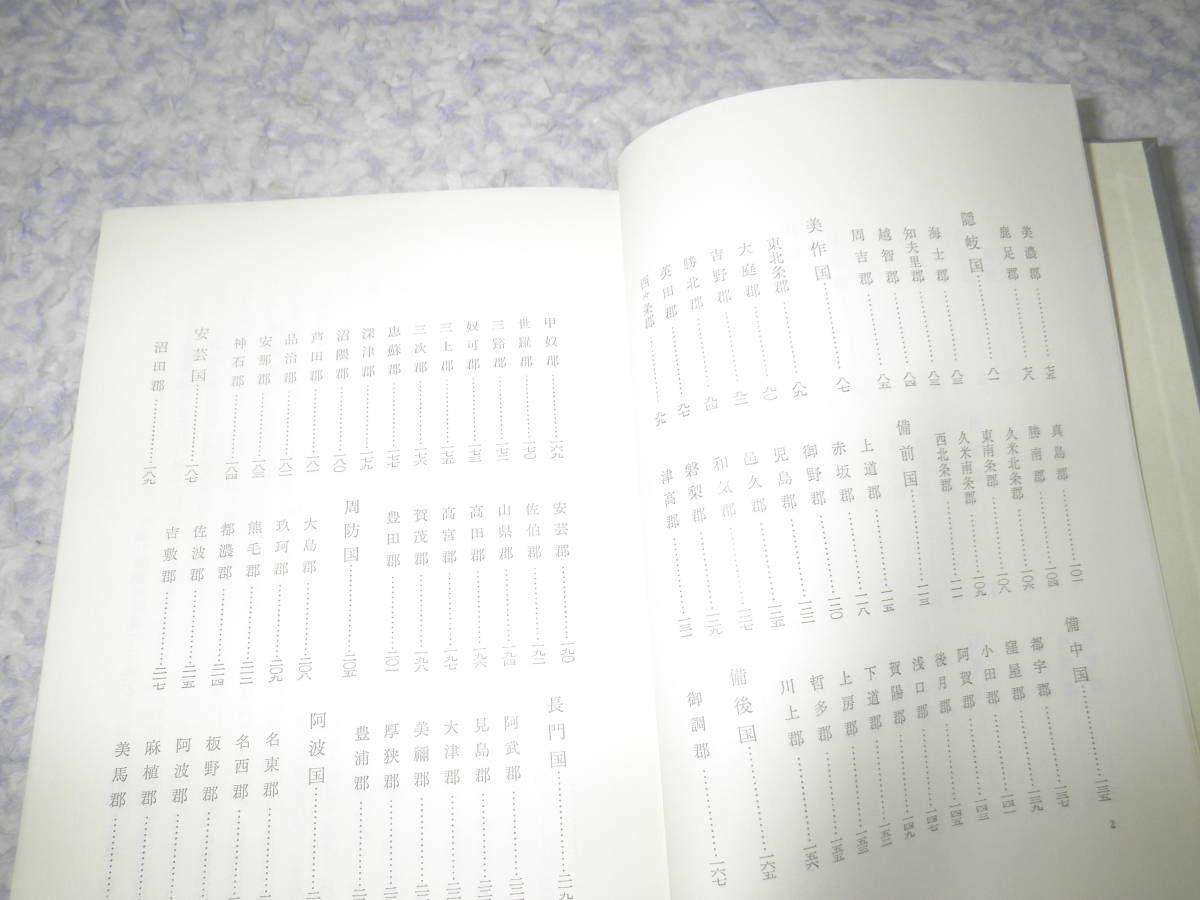 美濃郡……七五
鹿足郡……七八
隠岐国……八一
海士郡……八三
知夫里郡……八三
越智郡……八四
周吉郡……八五
美作国……八七
東北条郡……八九
大庭郡……九〇
吉野郡……九二
勝北郡……九四
英田郡……九七
西々条郡……九九
真島郡……一〇一
勝南郡……一〇四
久米北条郡……一〇六
東南条郡……一〇八
久米南条郡……一〇九
西北条郡……一一一
備前国……一一三
上道郡……一一五
赤坂郡……一一八
御野郡……一二〇
児島郡……一二三
邑久郡……一二五
和気郡……一二七
磐梨郡……一二九
津高郡……一三一
備中国……一三五
都宇郡……一三七
窪屋郡……一三九
小田郡……一四一
阿賀郡……一四三
後月郡……一四五
浅口郡……一四七
賀陽郡……一四九
下道郡……一五二
上房郡……一五三
哲多郡……一五五
川上郡……一五六
備後国……一六五
御調郡……一六七
2
甲奴郡……一六九
世羅郡……一七〇
三谿郡……一七三
奴可郡……一七三
三上郡……一七五
三次郡……一七六
恵蘇郡……一七七
深津郡……一七九
沼隈郡……一八〇
芦田郡……一八二
品治郡……一八二
安那郡……一八三
神石郡……一八四
安芸国……一八七
沼田郡……一八九
安芸郡……一九〇
佐伯郡……一九二
山県郡……一九四
高田郡……一九六
高宮郡……一九七
賀茂郡……一九八
豊田郡……二〇一
周防国……二〇五
大島郡……二〇八
玖珂郡……二〇九
熊毛郡……二一二
都濃郡……二一四
佐波郡……二一五
吉敷郡……二一七
長門国……二一九
阿武郡……
見島郡……
大津郡……
美禰郡……
厚狭郡……
豊浦郡……
阿波国……
名東郡……
名西郡……
板野郡……
阿波郡……
麻植郡……
美馬郡……